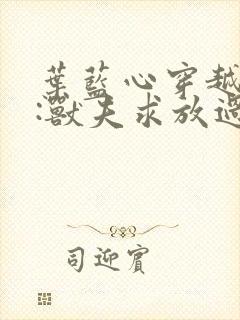 葉藍心穿越
:獸夫求放過
司迎賓